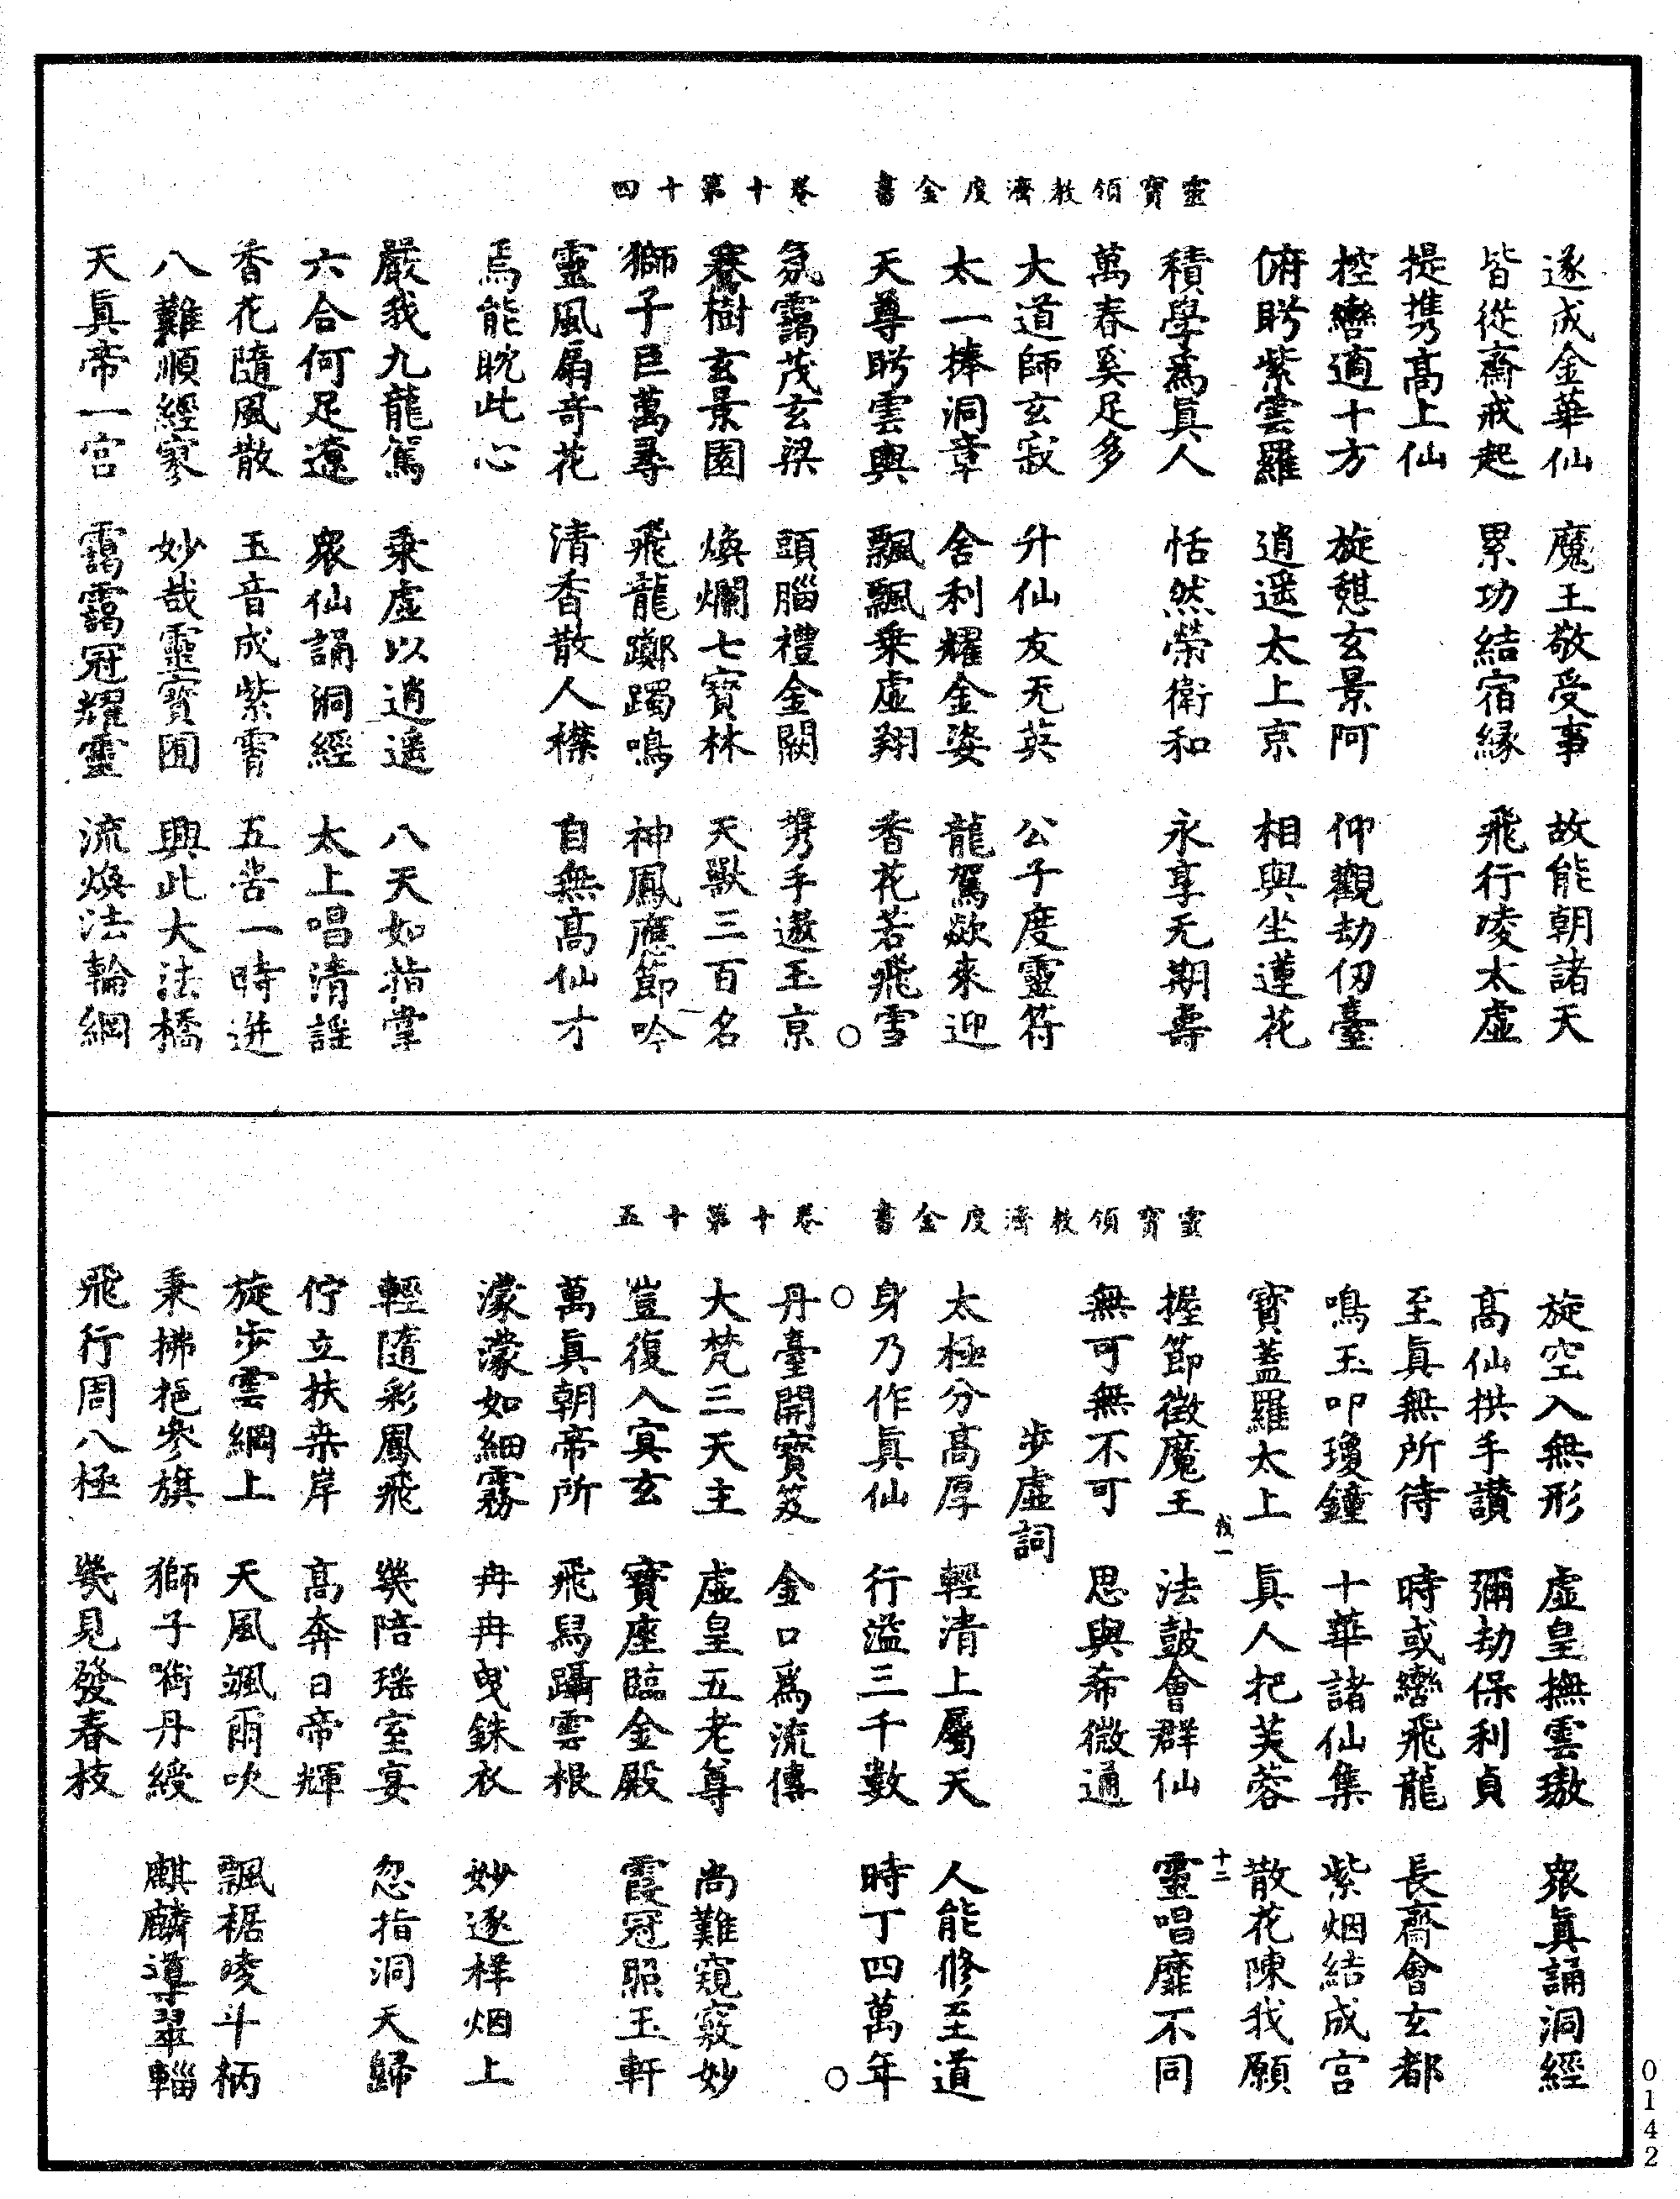 靈寶領教濟度金書　卷十第十四
遂成金華仙　魔王敬受事　故能朝諸天
皆從齋戒起　累功結宿緣　飛行凌太虛
提携高上仙
控轡適十方　旋憩玄景阿　仰觀劫仞臺
俯眄紫雲羅　逍遥太上京　相與坐蓮花
積學爲眞人　恬然榮衛和　永享无期壽
萬春奚足多
大道師玄寂　升仙友无英　公子度靈符
太一捧洞章　舍利耀金姿　龍駕欻來迎
天尊眄雲輿　飄飄乗虛翔　香花若飛雪○
氛靄茂玄梁　頭腦禮金闕　携手遨玉京
騫樹玄景園　煥爛七寶林　天獸三百名
獅子巨萬尋　飛龍躑躅鳴　神鳳應節吟
靈風扇奇花　清香散人襟　自無高仙才
焉能眈此心
嚴我九龍駕　乗虛以逍遥　八天如指掌
六合何足遼　衆仙誦洞經　太上唱清謡
香花隨風散　玉音成紫霄　五苦一時迸
八難順經寥　妙哉靈寶囿　興此大法橋
天眞帝一宫　靄靄冠耀靈　流煥法輪綱
靈寶領教濟度金書　卷十第十五
旋空入無形　虛皇撫雲璈　衆眞誦洞經
高仙拱手讃　彌劫保利貞
至眞無所待　時或轡飛龍　長齋會玄都
鳴玉叩瓊鐘　十華諸仙集　紫烟結成宫
寶蓋羅太上　眞人把芙蓉　散花陳我願
筏一　十二
握節徵魔王　法鼓會群仙　靈唱靡不同
無可無不可　思與希微通
步虛詞
太極分高厚　輕清上屬天　人能修至道
身乃作眞仙　行溢三千數　時丁四萬年○
○丹臺開寶笈　金口爲流傳
大梵三天主　虛皇五老尊　尚難窺竅妙
豈復入冥玄　寶座臨金殿　霞冠照玉軒
萬眞朝帝所　飛舄躡雲根
濛濛如細霧　冉冉曳銖衣　妙逐祥烟上
輕隨彩鳳飛　幾陪瑶室宴　忽指洞天歸
佇立扶桒岸　高奔日帝輝
旋步雲綱上　天風颯爾吹　飄裾凌斗柄
秉拂挹參旗　獅子銜丹綬　麒麟導翠輜
飛行周八極　幾見發春枝
0142